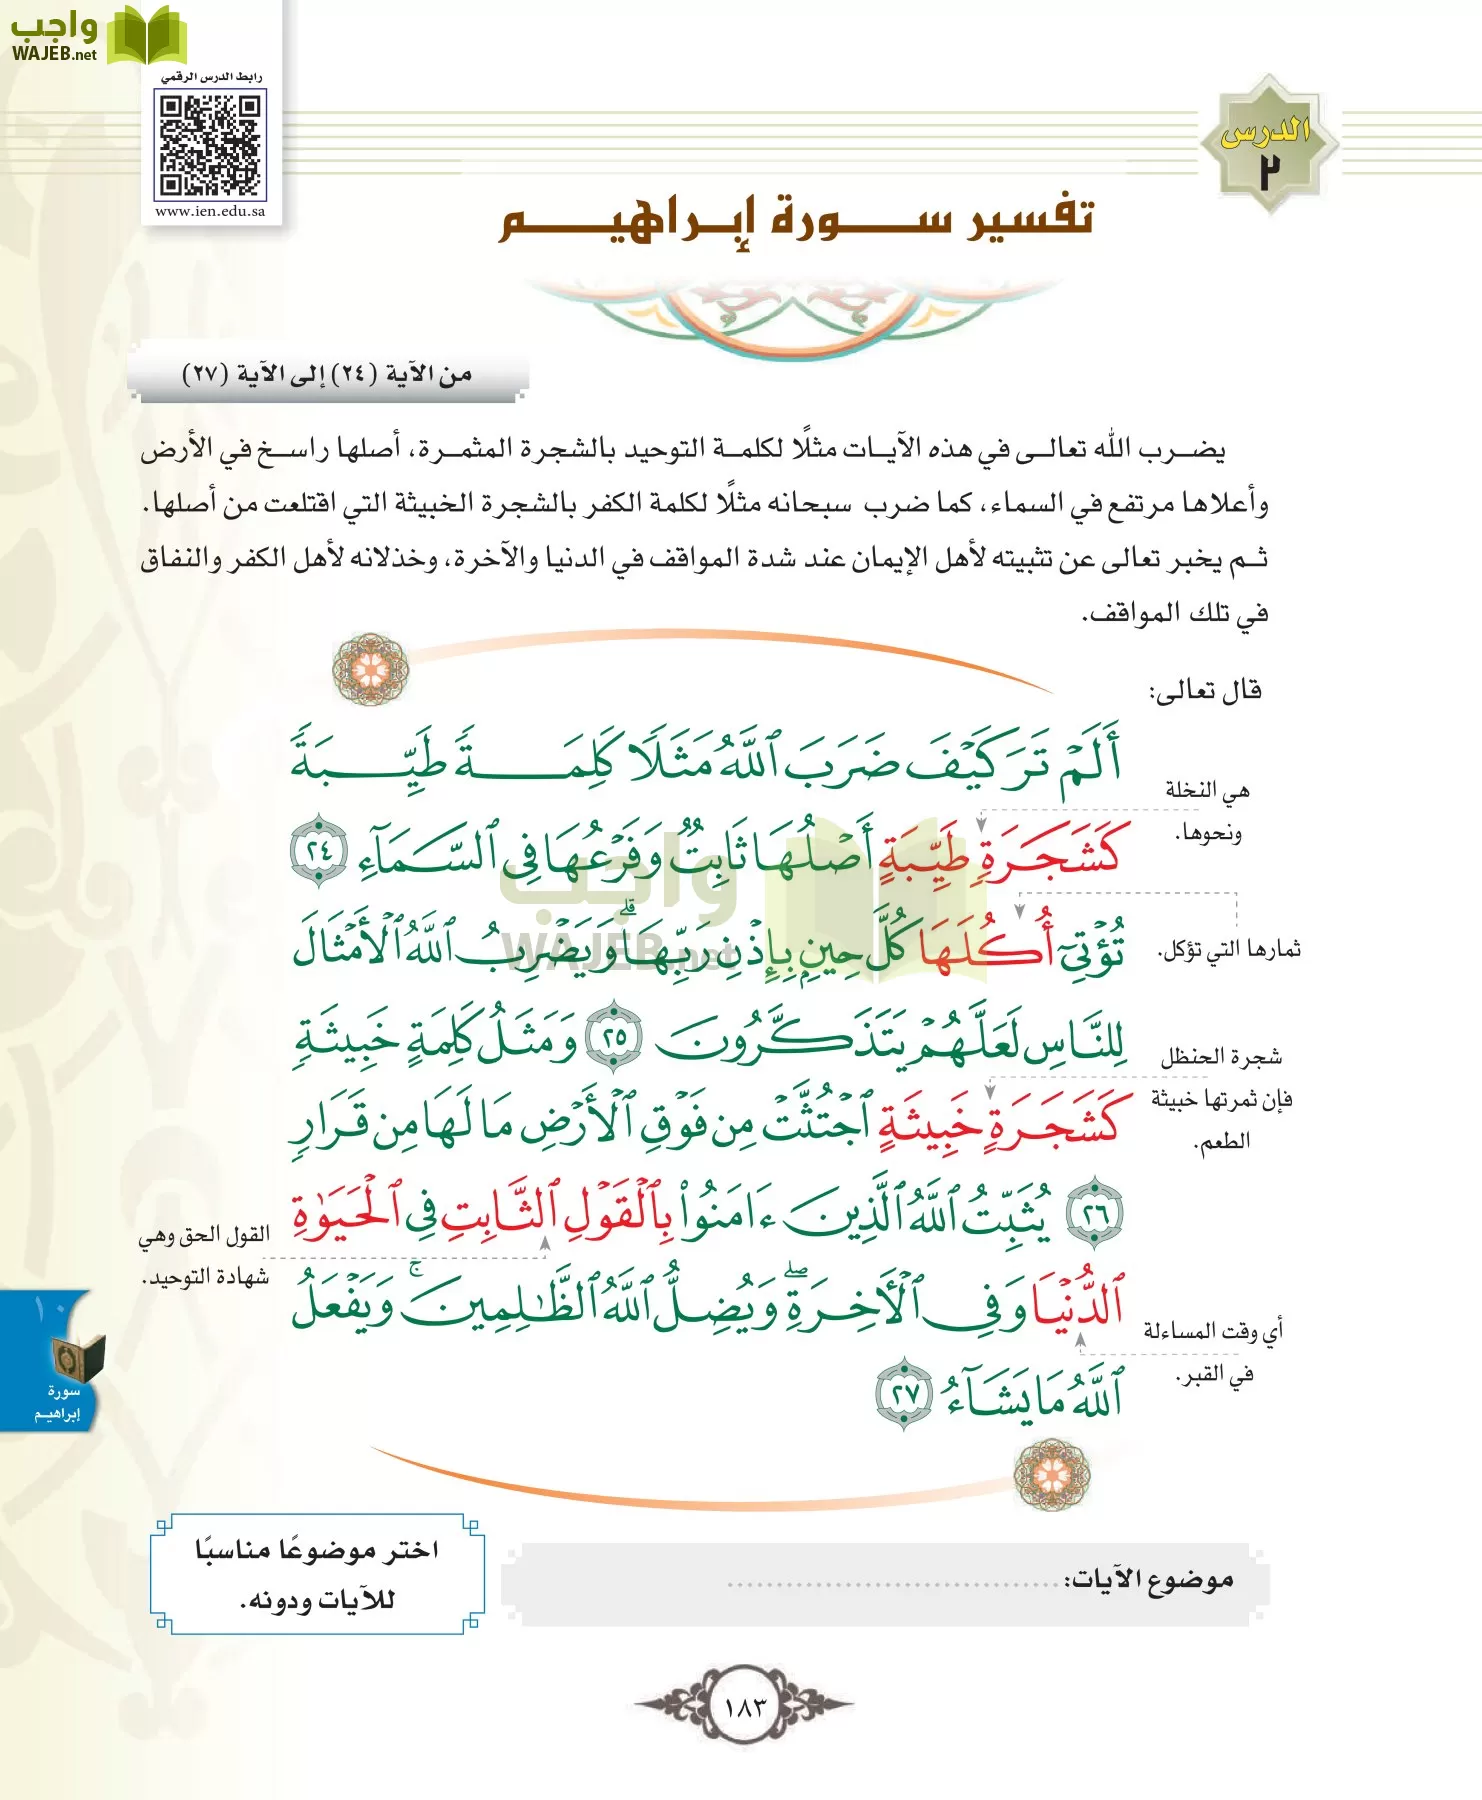 واجب
WAJEB.net
رابط الدرس الرقمي
www.ien.edu.sa
الدرس
٢
تفسير سورة إبراهيم
من الآية (٢٤) إلى الآية (٢٧)
يضرب الله تعالى في هذه الآيات مثلًا لكلمة التوحيد بالشجرة المثمرة، أصلها راسخ في الأرض
وأعلاها مرتفع في السماء، كما ضرب سبحانه مثلًا لكلمة الكفر بالشجرة الخبيثة التي اقتلعت من أصلها.
ثم يخبر تعالى عن تثبيته لأهل الإيمان عند شدة المواقف في الدنيا والآخرة، وخذلانه لأهل الكفر والنفاق
في تلك المواقف.
قال تعالى:
أَلَمْ تَرَ كَيْفَ ضَرَبَ ٱللَّهُ مَثَلًا كَلِمَةً طَيِّبَةً
هي النخلة
ونحوها.
كَشَجَرَةٍ طَيِّبَةٍ أَصْلُهَا ثَابِتٌ وَفَرْعُهَا فِى ٱلسَّمَآءِ ٢٤
واجب
WAJEB.net
تُؤْتِىٓ أُكُلَهَا كُلَّ حِينٍ بِإِذْنِ رَبِّهَا ۗ وَيَضْرِبُ ٱللَّهُ ٱلْأَمْثَالَ
ثمارها التي تؤكل.
لِلنَّاسِ لَعَلَّهُمْ يَتَذَكَّرُونَ ٢٥ وَمَثَلُ كَلِمَةٍ خَبِيثَةٍ
شجرة الحنظل
فإن ثمرتها خبيثة
الطعم.
كَشَجَرَةٍ خَبِيثَةٍ ٱجْتُثَّتْ مِن فَوْقِ ٱلْأَرْضِ مَا لَهَا مِن قَرَارٍ
٢٦ يُثَبِّتُ ٱللَّهُ ٱلَّذِينَ ءَامَنُوا۟ بِٱلْقَوْلِ ٱلثَّابِتِ فِى ٱلْحَيَوٰةِ
القول الحق وهي
شهادة التوحيد.
ٱلدُّنْيَا وَفِى ٱلْأَخِرَةِ ۖ وَيُضِلُّ ٱللَّهُ ٱلظَّـٰلِمِينَ ۚ وَيَفْعَلُ
أي وقت المساءلة
في القبر.
ٱللَّهُ مَا يَشَآءُ ٢٧
١٠
سورة
إبراهيم
موضوع الآيات: ..................................
اختر موضوعًا مناسبًا
للآيات ودونه.
١٨٣